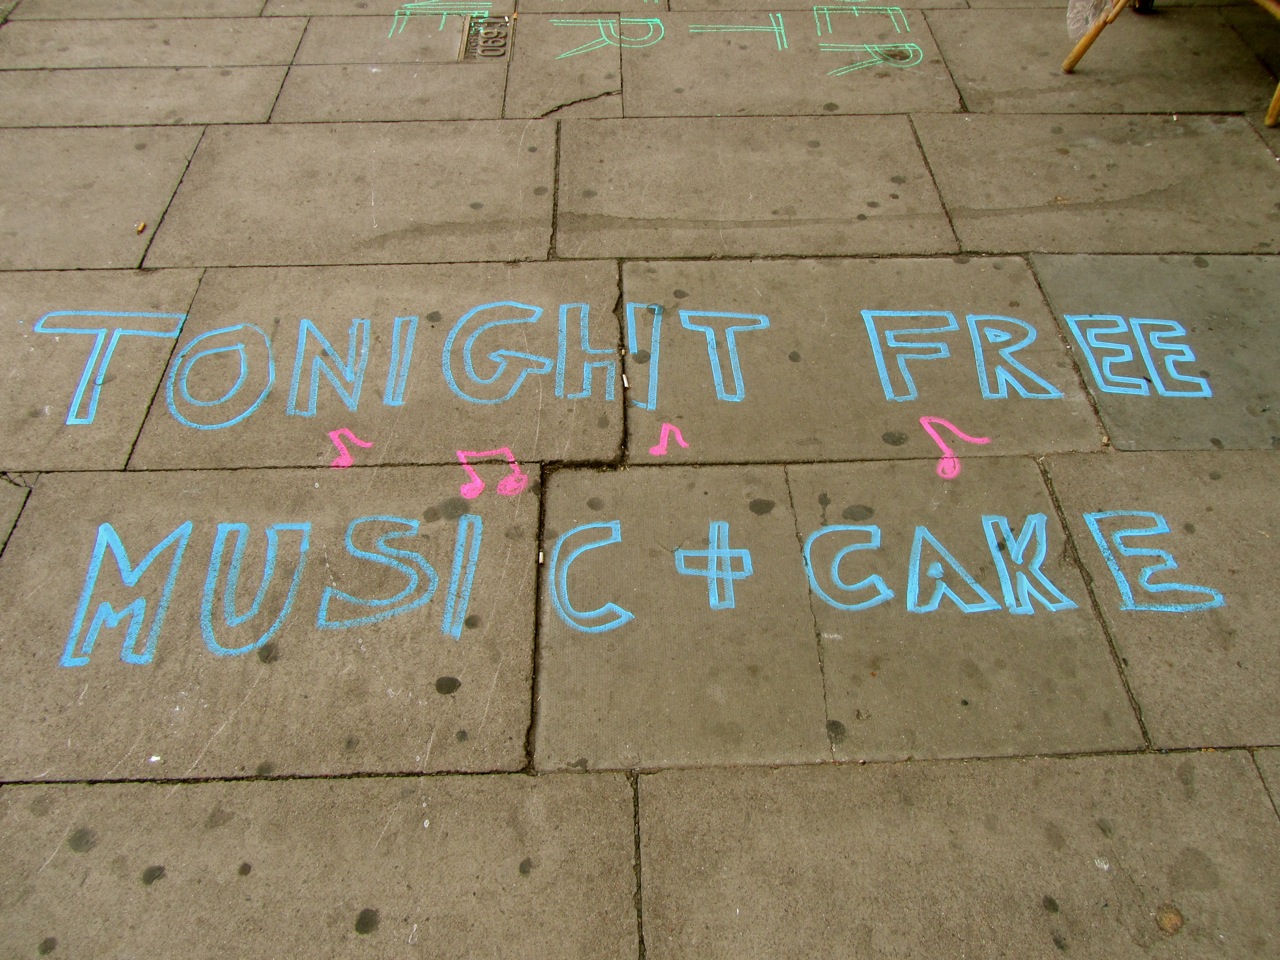 TONIGHT FREE
MUSIC + CAKE